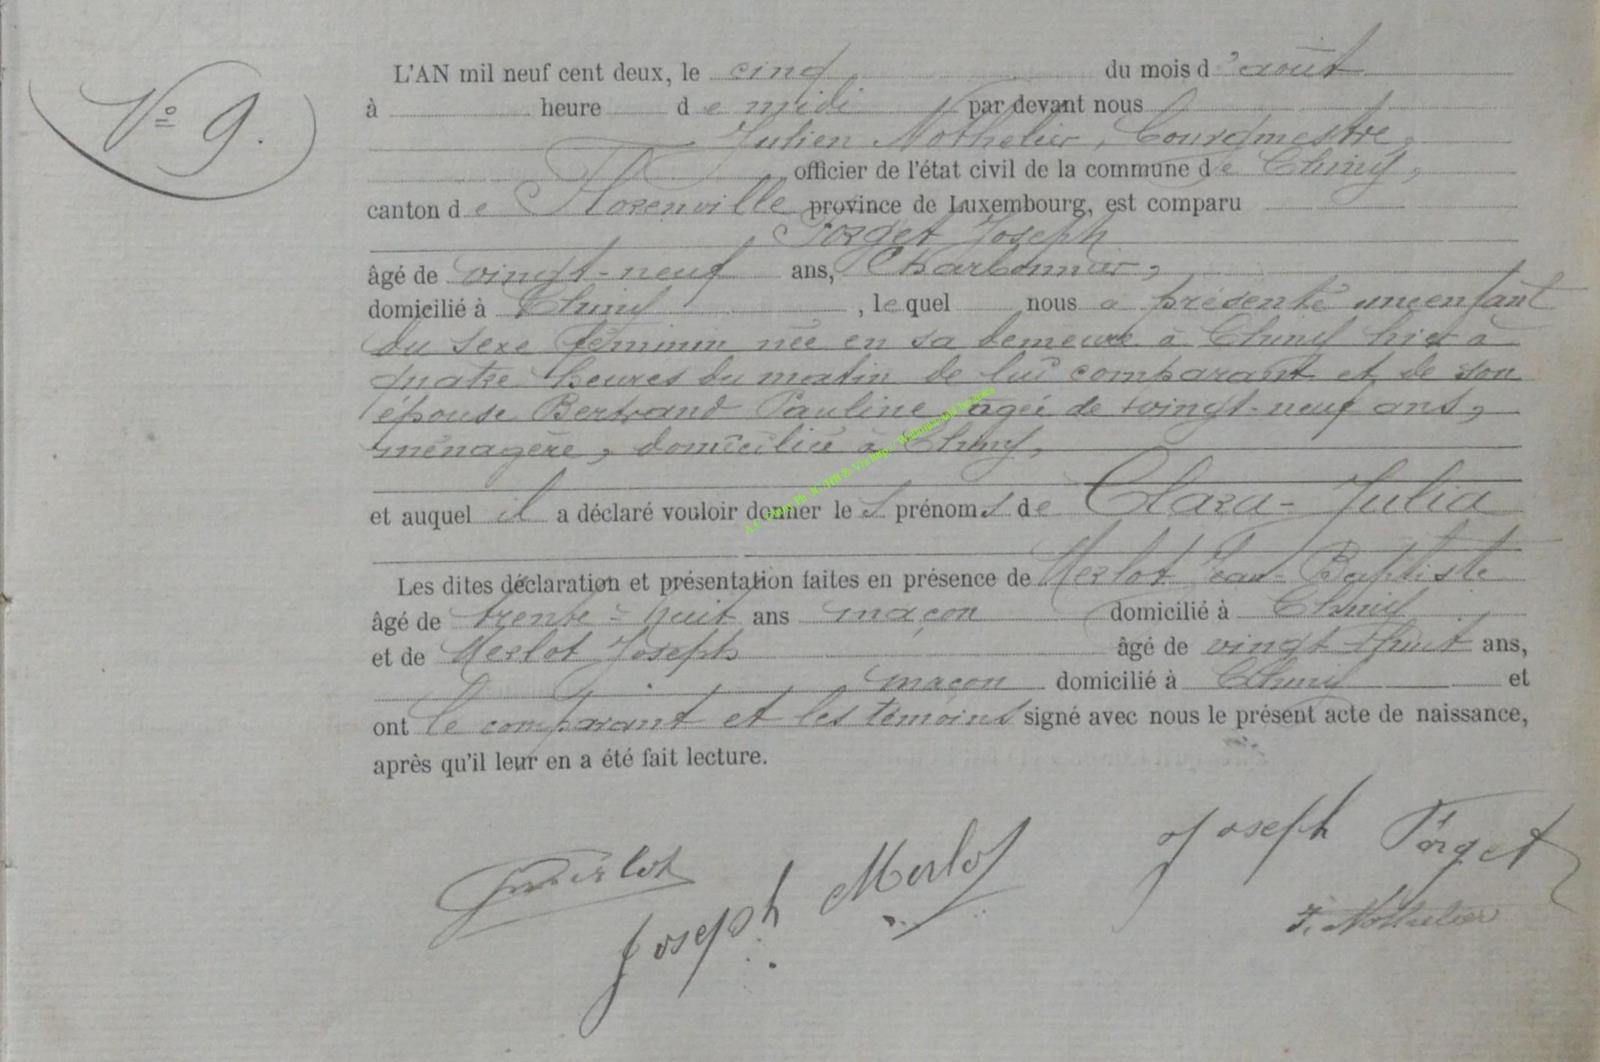 N° 9.
L'AN mil neuf cent deux, le cinq du mois d'août
à heure de midi par devant nous
Julien Nothelier, Bourgmestre,
officier de l'état civil de la commune de Chiny,
canton de Florenville province de Luxembourg, est comparu
Forget Joseph
âgé de vingt-neuf ans, Charbonnier,
domicilié à Chiny, lequel nous a présenté un enfant
du sexe féminin née en sa demeure à Chiny hier à
quatre heures du matin de lui comparant et de son
épouse Bertrand Pauline, âgée de vingt-neuf ans,
ménagère, domiciliée à Chiny,
et auquel il a déclaré vouloir donner les prénoms de Clara-Julia
Les dites déclaration et présentation faites en présence de Merlot Jean-Baptiste
âgé de trente-huit ans maçon domicilié à Chiny
et de Merlot Joseph âgé de vingt-huit ans,
maçon domicilié à Chiny et
ont le comparant et les témoins signé avec nous le présent acte de naissance,
après qu'il leur en a été fait lecture.
Merlot
Joseph Merlot
Joseph Forget
J. Nothelier